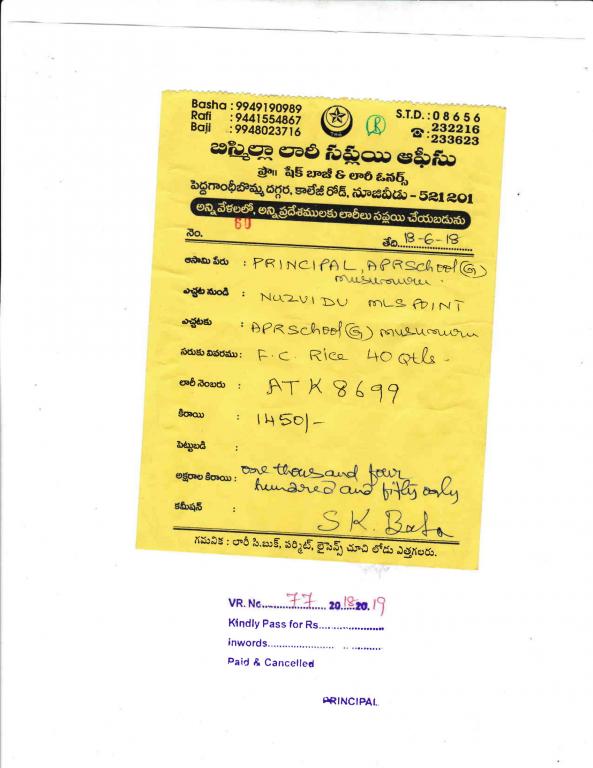 Basha : 9949190989
Rafi : 9441554867
Baji : 9948023716
S.T.D. : 08656
☎ : 232216
233623
బిస్మిల్లా లారీ సప్లయి ఆఫీసు
ప్రొ॥ షేక్ బాజీ & లారీ ఓనర్స్
పెద్దగాంధీబొమ్మ దగ్గర, కాలేజీ రోడ్, నూజివీడు - 521 201
అన్నివేళలలో, అన్నిప్రదేశములకు లారీలు సప్లయి చేయబడును
నెం. 60
తేది 18-6-18
ఆసామి పేరు : PRINCIPAL, APRSchool(G)
musunuru.
ఎచ్చట నుండి : NUZVIDU MLS POINT
ఎచ్చటకు : APRSchool(G) musunuru
సరుకు వివరము : F.C. Rice 40 Qtls -
లారీ నెంబరు : ATK 8699
కిరాయి : 1450/-
పెట్టుబడి :
అక్షరాల కిరాయి : one thousand four
hundred and fifty only
కమీషన్ :
S K. Basha
గమనిక : లారీ సి.బుక్, పర్మిట్, లైసెన్స్ చూచి లోడు ఎత్తగలరు.
VR. No. 77 2018 2019
Kindly Pass for Rs.
inwords
Paid & Cancelled
PRINCIPAL